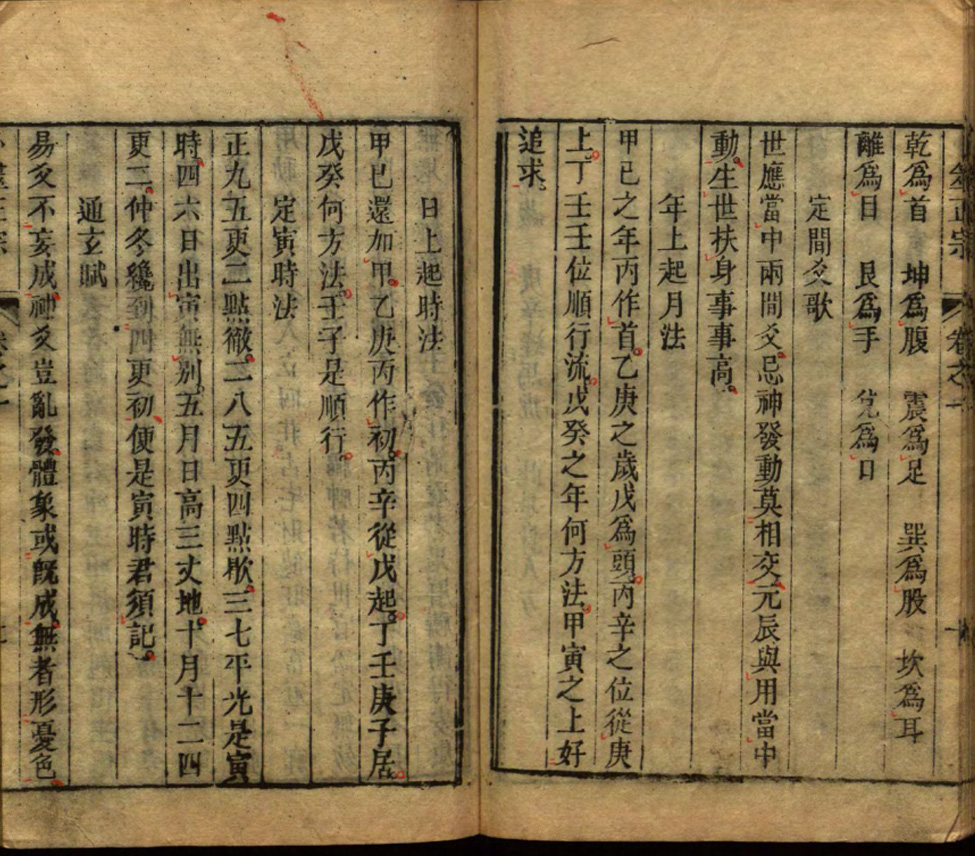 正宗 卷之一
乾爲首 坤爲腹 震爲足 巽爲股 坎爲耳
離爲目 艮爲手 兌爲口
定間爻歌
世應當中兩間爻忌神發動莫相交元辰與用當中
動生世扶身事事高
年上起月法
甲己之年丙作首乙庚之歲戊爲頭丙辛之位從庚
上丁壬壬位順行流戊癸之年何方法甲寅之上好
追求
日上起時法
甲已還加甲乙庚丙作初丙辛從戊起丁壬庚子居
戊癸何方法壬子是順行
定寅時法
正九五更二點徹二八五更四點歇三七平光是寅
時四六日出寅無別五月日高三丈地十月十二四
更二仲冬纔到四更初便是寅時君須記
通玄賦
易爻不妄成神爻豈亂發體象或旣成無者形憂色
正宗 卷之一